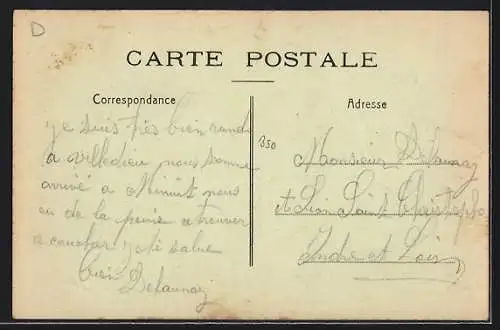 D
CARTE POSTALE
Correspondance
Adresse
je suis très bien rendu
a villedieu nous somme
arrivé a Minuit nous
on de la peine a trouver
a coucher je te salue
bien Delaunay
350
Monsieur Delaunay
Saint
Indre et Loir